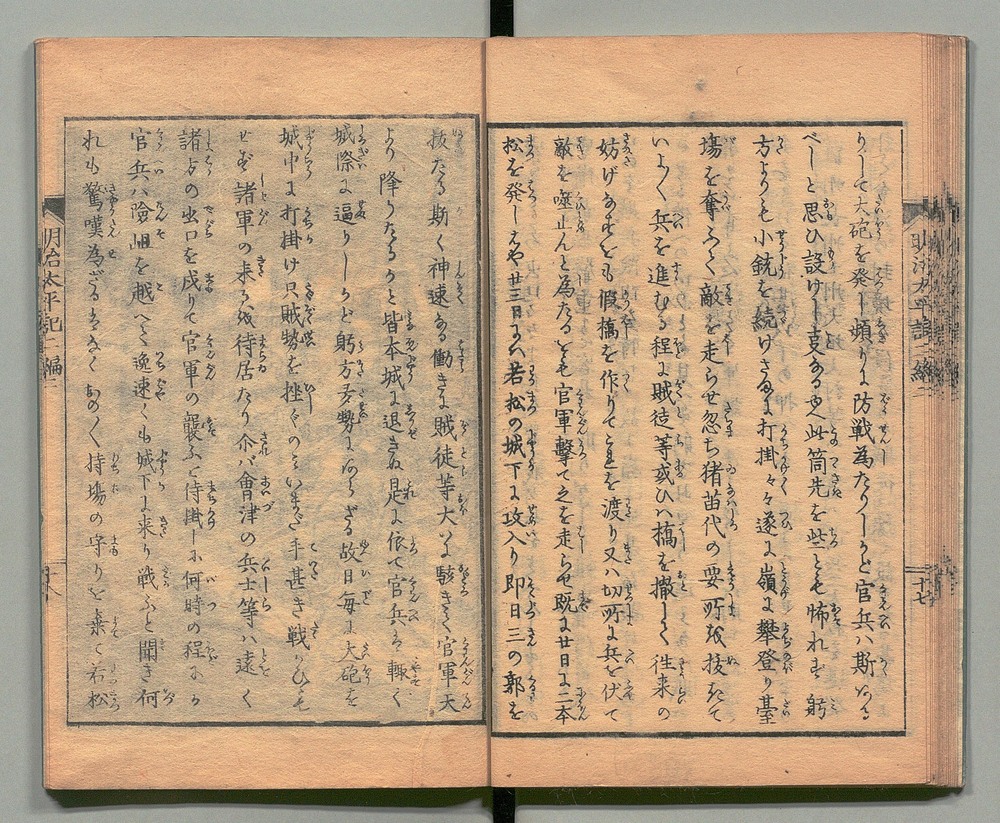 りして大砲を発し頻りに防戦為たりしかど官兵ハ斯いかる
べしと思ひ設けし支なる也此筒先を些とも怖れず躬
方よりも小銃を続けさまに打掛々々遂に嶺に攀登り臺
場を奪ふて敵を走らせ忽ち猪苗代の要所を抜たて
いよく兵を進むる程に賊徒等或ひハ橋を撤して往来の
妨げなせども假橋を作りてこれを渡り又ハ切所に兵を伏て
敵を喰止んと為たるをも官軍撃て之を走らせ既に廿日に二本
松を発しはや廿三日にハ若松の城下に攻入り即日三の郭を
抜たる斯く神速なる働きに賊徒等大いに駭きて官軍天
より降りたるかと皆本城に退きぬ是に依て官兵ハ輙く
城際に逼りしかど躬方多勢にあらざる故日毎に大砲を
城中に打掛け只賊勢を挫くのミいまだ手甚き戦ひも
せず諸軍の来るを待居たり介バ會津の兵士等ハ遠く
諸方の出口を戍りて官軍の襲ふを待掛しに何時の程にか
官兵ハ險岨を越へて逸速くも城下に来り戦ふと聞き何
れも驚嘆為ざるハなく おのく持場の守りを棄て若松
明治太平記二編二
十七
明治太平記二編二